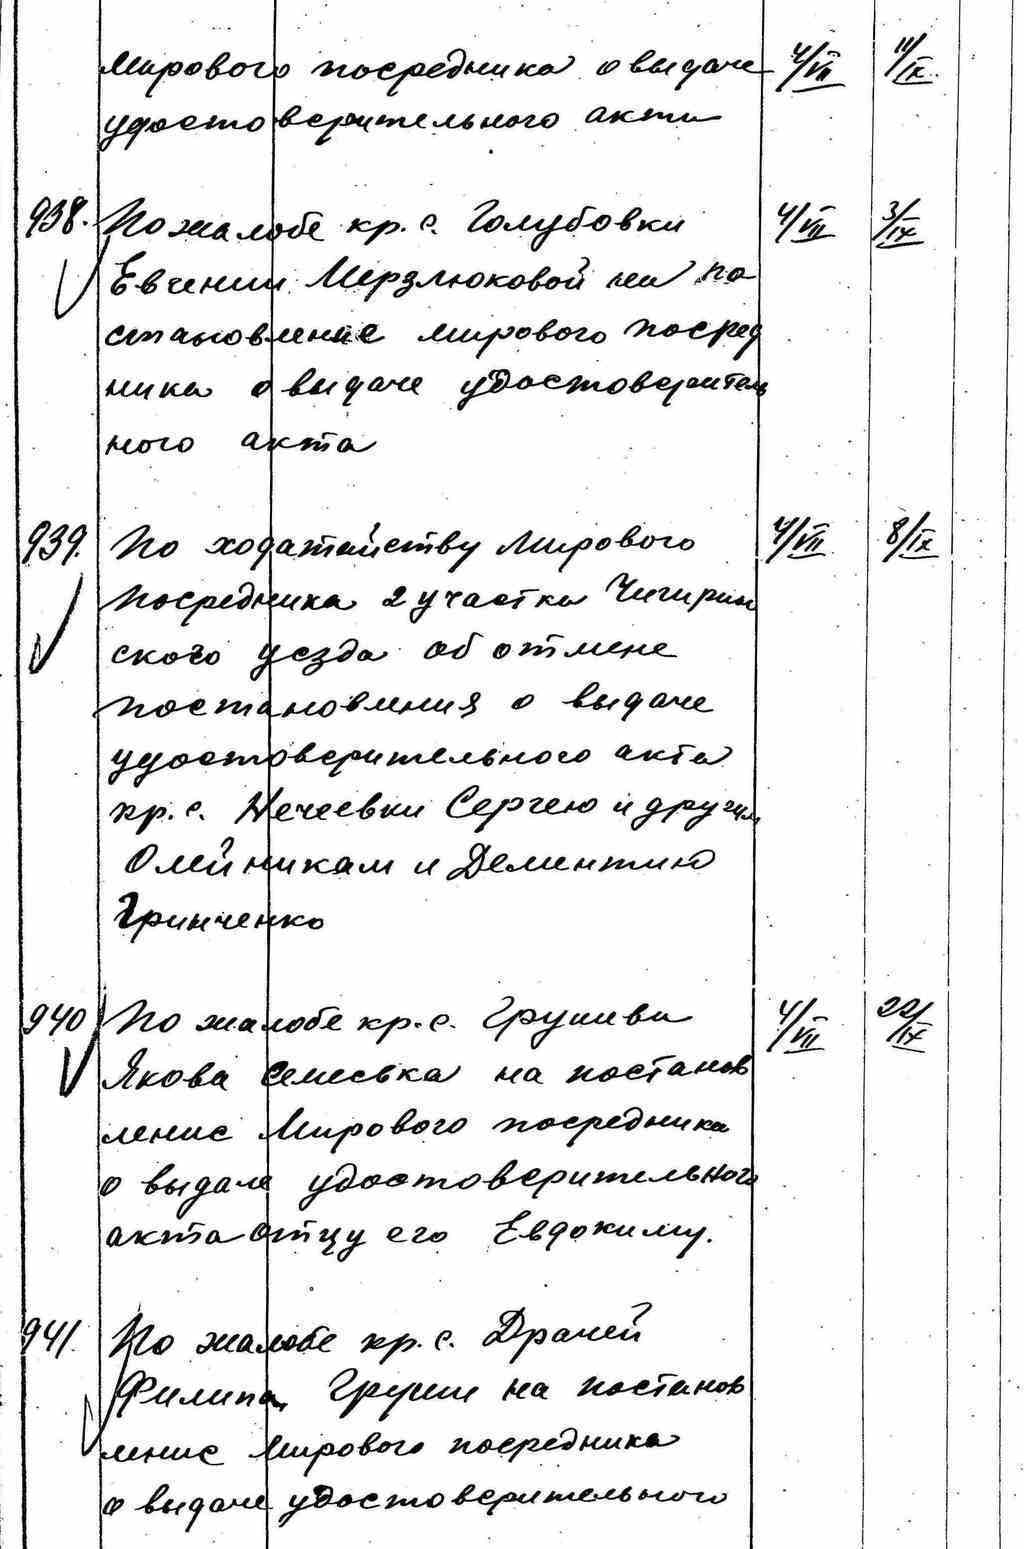 Мирового посредника о выдаче 4/VII 11/IX
удостоверительного акта
938. По жалобе кр. с. Голубовки 4/VII 3/IX
Евгении Мерзлюковой на по
становление мирового посред
ника о выдаче удостоверитель
ного акта
939. По ходатайству Мирового 4/VII 8/IX
Посредника 2 участка Чигирин
ского уезда об отмене
постановления о выдаче
удостоверительного акта
кр. с. Нечеевки Сергею и другим
Олейникам и Дементию
Гринченко
940 По жалобе кр. с. Грушева 4/VII 22/IX
Якова на постанов
ление Мирового посредника
о выдаче удостоверительного
акта отцу его Евдокиму.
941. По жалобе кр. с. Драчей
Филипа Груши на постанов
ление Мирового посредника
о выдаче удостоверительного